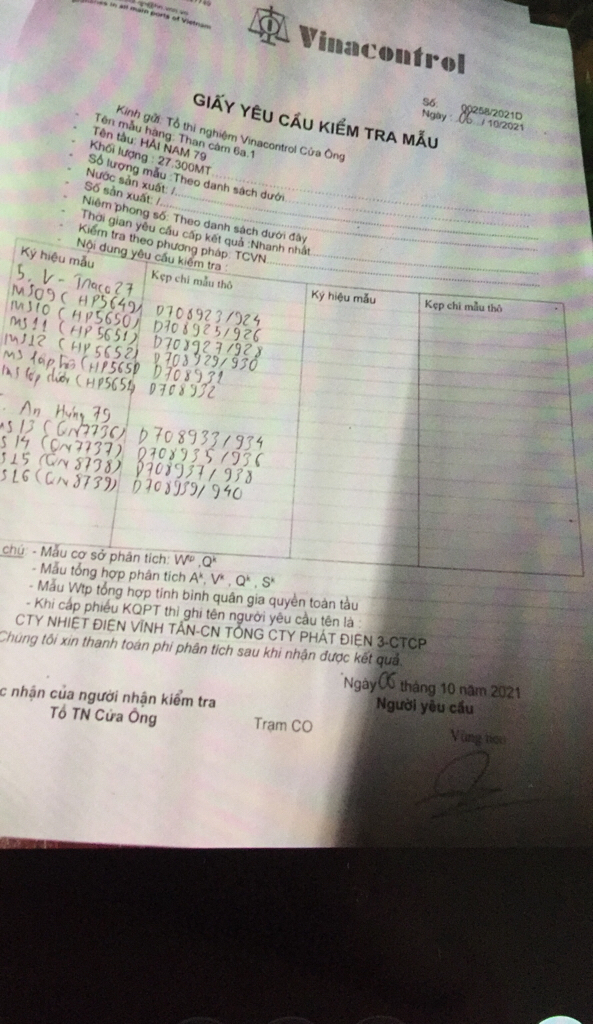 branches in all main ports of Vietnam
Vinacontrol
Số: 00258/2021D
Ngày : 06 / 10/2021
GIẤY YÊU CẦU KIỂM TRA MẪU
Kính gửi: Tổ thí nghiệm Vinacontrol Cửa Ông
- Tên mẫu hàng: Than cám 6a.1
- Tên tàu: HẢI NAM 79
- Khối lượng : 27.300MT
- Số lượng mẫu :Theo danh sách dưới
- Nước sản xuất: /
- Số sản xuất: /
- Niêm phong số: Theo danh sách dưới đây
- Thời gian yêu cầu cấp kết quả :Nhanh nhất
- Kiểm tra theo phương pháp: TCVN
- Nội dung yêu cầu kiểm tra :
Ký hiệu mẫu Kẹp chì mẫu thô Ký hiệu mẫu Kẹp chì mẫu thô
5. V - Inaco 27
MS09 ( HP5649) D708923/924
MS10 ( HP5650) D708925/926
MS11 ( HP5651) D708927/928
MS12 ( HP5652) D708929/930
D708931
D708932
An Hưng 79
S13 (QN7736) D708933/934
S14 (QN7737) D708935/936
S15 (QN8738) D708937/938
S16 (QN8739) D708939/940
chú: - Mẫu cơ sở phân tích: Wtp ,Qk
- Mẫu tổng hợp phân tích Ak, Vk , Qk , Sk
- Mẫu Wtp tổng hợp tính bình quân gia quyền toàn tàu
- Khi cấp phiếu KQPT thì ghi tên người yêu cầu tên là :
CTY NHIỆT ĐIỆN VĨNH TÂN-CN TỔNG CTY PHÁT ĐIỆN 3-CTCP
Chúng tôi xin thanh toán phí phân tích sau khi nhận được kết quả.
Ngày 06 tháng 10 năm 2021
c nhận của người nhận kiểm tra Người yêu cầu
Tổ TN Cửa Ông Trạm CO